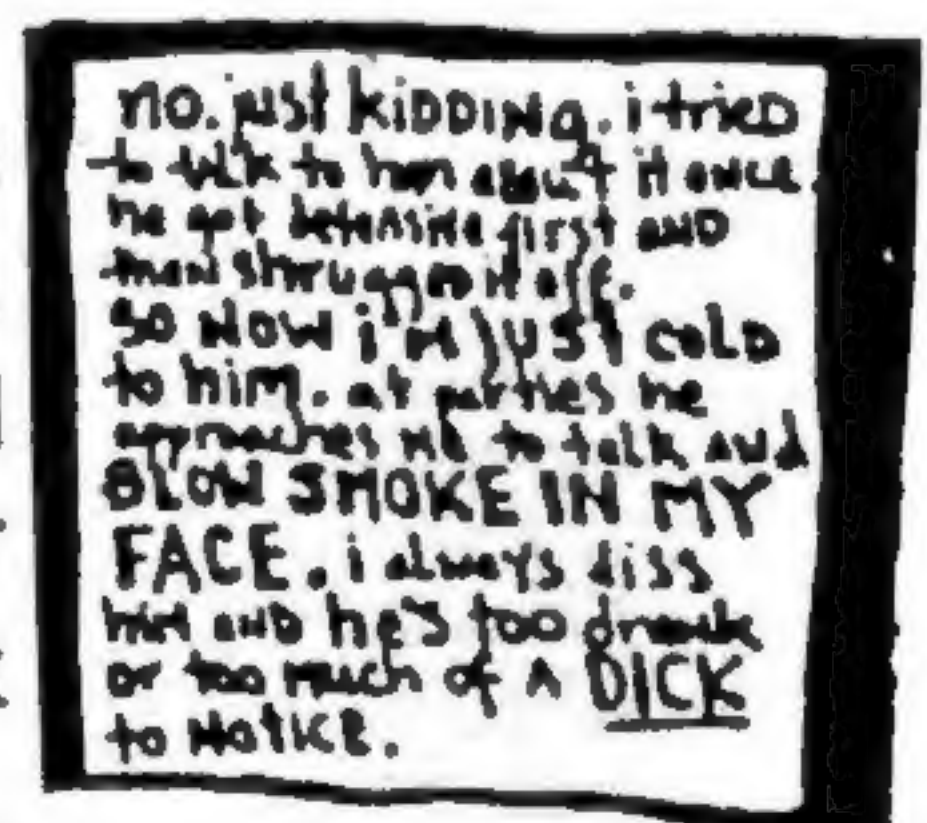 no. just kiDDiNg. i trieD
to talk to him about it once.
he got defensive first AND
then shruggeD it off.
so NOW i'm just colD
to him. at parties he
approaches me to talk and
BLOW SMOKE IN MY
FACE. i always diss
him AND he's too drunk
or too much of A DICK
to Notice.